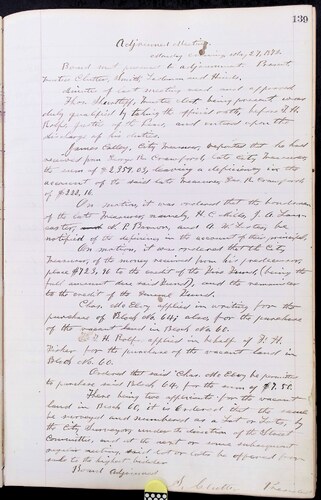 139
Adjourned Meeting
Monday Evening May 27, 1872.
Board met pursuant to adjournment. Present
Trustees Clutter, Smith, and Hinds.
Minutes of last meeting read and approved
Trustee elect being present was
duly qualified by taking the official oath, before T. H.
Rolfe Justice of the Peace, and entered upon the
discharge of his duties.
James Colley, City Treasurer reported that he had
received from Geo. R. Crawford, late City Treasurer,
the sum of $2,359.03, leaving a deficiency in the
account of the said late Treasurer Geo. R. Crawford
of
On motion, it was ordered that the bondsmen
of the late Treasurer, namely H. C. Mills, J. A. Lan-
caster, and L. P. Brown, and A. W. be
notified of the deficiency in the account of their principal.
On motion, it was ordered that the City
Treasurer, of the money received from his predecessor,
place $723.76 to the credit of the Fund, (being the
full amount due said Fund), and the remainder
to the credit of the General Fund.
Chas. McElroy applied in writing for the
purchase of Block 64; also, for the purchase
of the vacant land in Block No. 60.
T. H. Rolfe applied in behalf of
for the purchase of the vacant land in
Block No. 60.
Ordered that said Chas. McElroy be permitted
to purchase said Block 64, for the sum of $7.50.
There being two applicants for the vacant
land in Block 60, it is Ordered that the same
be surveyed and numbered as a lot or lots, by
the City Surveyor under the direction of the Street
Committee, and at the next or some subsequent
regular meeting, said lot or lots be offered for
sale to the highest bidder.
Board Adjourned